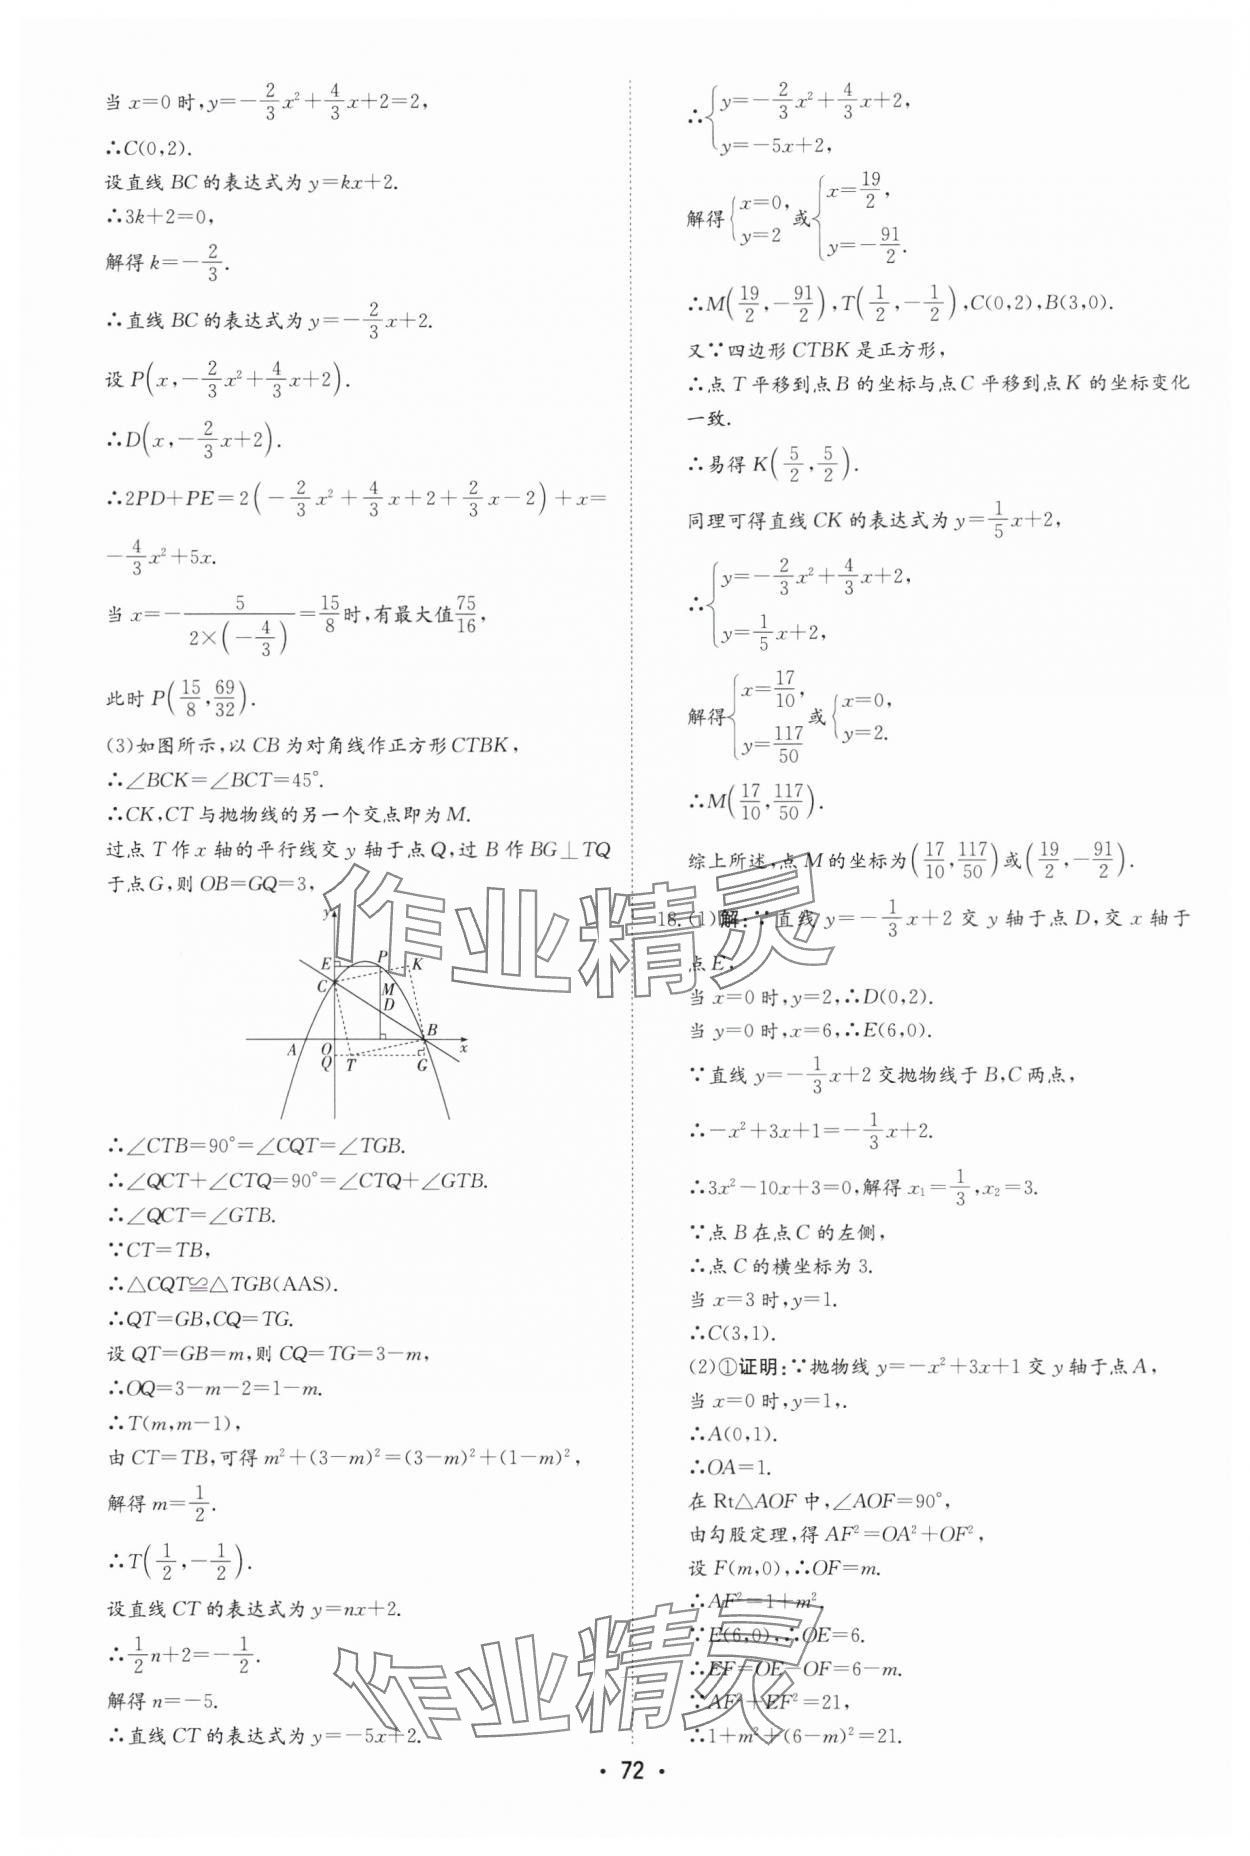 当 x=0 时,y=-2/3x²+4/3x+2=2,
∴C(0,2).
设直线 BC 的表达式为 y=kx+2.
∴3k+2=0,
解得 k=-2/3.
∴直线 BC 的表达式为 y=-2/3x+2.
设 P(x,-2/3x²+4/3x+2).
∴D(x,-2/3x+2).
∴2PD+PE=2(-2/3x²+4/3x+2+2/3x-2)+x=
-4/3x²+5x.
当 x=-5/(2×(-4/3))=15/8时,有最大值75/16,
此时 P(15/8,69/32).
(3)如图所示,以 CB 为对角线作正方形 CTBK,
∴∠BCK=∠BCT=45°.
∴CK,CT 与抛物线的另一个交点即为 M.
过点 T 作 x 轴的平行线交 y 轴于点 Q,过 B 作 BG⊥TQ
于点 G,则 OB=GQ=3,
y
E P K
C M
D
B
A O x
Q T G
∴∠CTB=90°=∠CQT=∠TGB.
∴∠QCT+∠CTQ=90°=∠CTQ+∠GTB.
∴∠QCT=∠GTB.
∵CT=TB,
∴△CQT≌△TGB(AAS).
∴QT=GB,CQ=TG.
设 QT=GB=m,则 CQ=TG=3-m,
∴OQ=3-m-2=1-m.
∴T(m,m-1),
由 CT=TB,可得 m²+(3-m)²=(3-m)²+(1-m)²,
解得 m=1/2.
∴T(1/2,-1/2).
设直线 CT 的表达式为 y=nx+2.
∴1/2n+2=-1/2.
解得 n=-5.
∴直线 CT 的表达式为 y=-5x+2.
∴{y=-2/3x²+4/3x+2,
y=-5x+2,
解得{x=0, y=2 或{x=19/2, y=-91/2.
∴M(19/2,-91/2),T(1/2,-1/2),C(0,2),B(3,0).
又∵四边形 CTBK 是正方形,
∴点 T 平移到点 B 的坐标与点 C 平移到点 K 的坐标变化
一致.
∴易得 K(5/2,5/2).
同理可得直线 CK 的表达式为 y=1/5x+2,
∴{y=-2/3x²+4/3x+2,
y=1/5x+2,
解得{x=17/10, y=117/50 或{x=0, y=2.
∴M(17/10,117/50).
综上所述,点 M 的坐标为(17/10,117/50)或(19/2,-91/2).
18.(1)解:∵直线 y=-1/3x+2 交 y 轴于点 D,交 x 轴于
点 E,
当 x=0 时,y=2,∴D(0,2).
当 y=0 时,x=6,∴E(6,0).
∵直线 y=-1/3x+2 交抛物线于 B,C 两点,
∴-x²+3x+1=-1/3x+2.
∴3x²-10x+3=0,解得 x₁=1/3,x₂=3.
∵点 B 在点 C 的左侧,
∴点 C 的横坐标为 3.
当 x=3 时,y=1.
∴C(3,1).
(2)①证明:∵抛物线 y=-x²+3x+1 交 y 轴于点 A,
当 x=0 时,y=1,.
∴A(0,1).
∴OA=1.
在 Rt△AOF 中,∠AOF=90°,
由勾股定理,得 AF²=OA²+OF²,
设 F(m,0),∴OF=m.
∴AF²=1+m².
∵E(6,0),∴OE=6.
∴EF=OE-OF=6-m.
∵AF²+EF²=21,
∴1+m²+(6-m)²=21.
· 72 ·
作业精灵
作业精灵